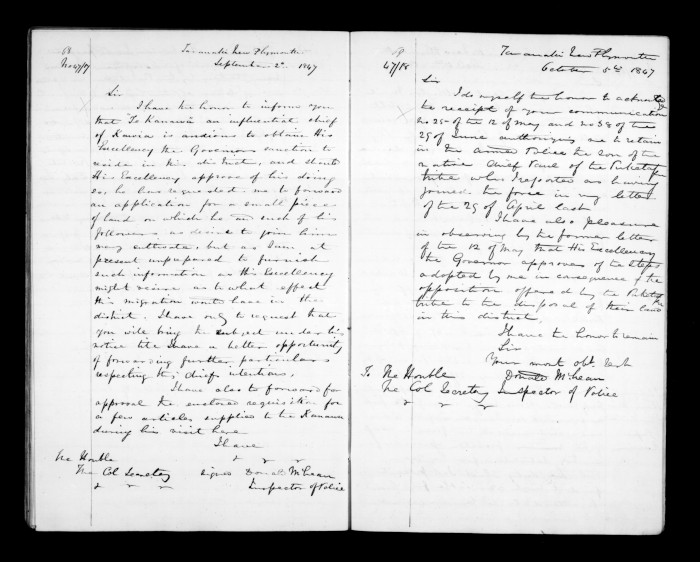 P
No 47/17
Taranaki New Plymouth
September 2nd 1847
Sir
I have the honor to inform you
that Te Kanawa an influential chief
of Kawia is anxious to obtain His
Excellency the Governors sanction to
reside in this district, and should
His Excellency approve of his doing
so, he has requested me to forward
an application for a small piece
of land on which he and such of his
followers as desire to join him
may cultivate, but as I am at
present unprepared to furnish
such information as His Excellency
might require as to what effect
his migration would have in this
district. I have only to request that
you will bring the subject under his
notice till I have a better opportunity
of forwarding further particulars
respecting this chiefs intentions.
I have also to forward for
approval the enclosed requisition for
a few articles supplied to Te Kanawa
during his visit here
I have
The Honble
The Col Secretary
signed Donald McLean
Inspector of Police
P
47/18
Taranaki New Plymouth
October 5th 1847
Sir
I do myself the honor to acknowledge
the receipt of your communication
no 25 of the 12 of May and no 38 of the
29 of June authorizing me to retain
in the Armed Police the son of the
native Chief of the Puketapu
tribe who I reported as having
joined the force in my letter
of the 29 of April last
I have also pleasure
in observing by the former letter
of the 12 of May that His Excellency
the Governor approves of the steps
adopted by me in consequence of the
opposition offered by the Puketapu
tribe to the disposal of their land
in this district.
I have the honor to remain
Sir
Your most obt. Servt
To The Honble
The Col Secretary
Donald McLean
Inspector of Police